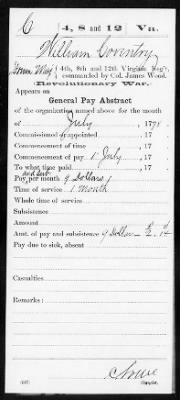 C | 4, 8 and 12 | Va.
William Coventry
(4th, 8th and 12th Virginia Reg't
commanded by Col. James Wood.
Revolutionary War.
Appears on
General Pay Abstract
of the organization named above for the month
of July, 1778.
Commissioned or appointed, 17
Commencement of time, 17
Commencement of pay 1 July, 17
To what time paid, 17
and subs
Pay per month 9 Dollars
Time of service 1 Month
Whole time of service
Subsistence
Amount
Amt. of pay and subsistence 9 Dollars
Pay due to sick, absent
Casualties
Remarks:
Copyist.